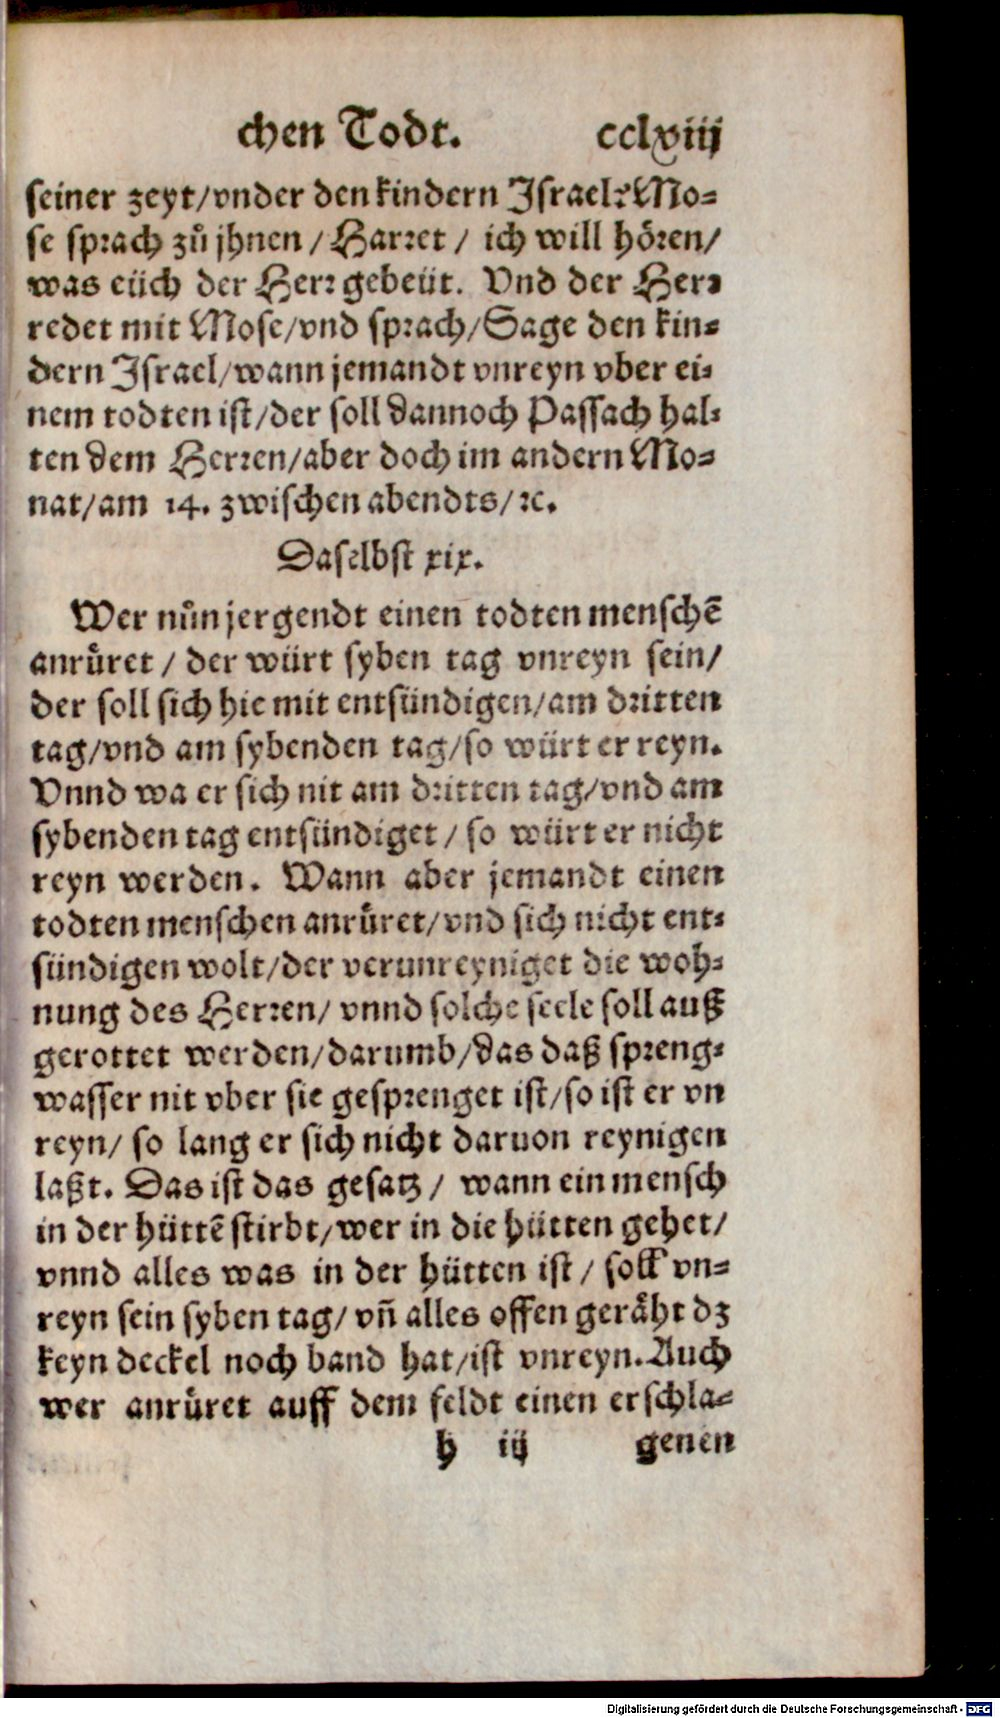 chen Todt. cclxiij
seiner zeyt/vnder den kindern Jsrael? Mo-
se sprach zů jhnen / Harret / ich will hören/
was eüch der Herr gebeüt. Vnd der Herr
redet mit Mose/vnd sprach/Sage den kin-
dern Jsrael/wann jemandt vnreyn vber ei-
nem todten ist/der soll dannoch Passach hal-
ten dem Herren/aber doch im andern Mo-
nat/am 14. zwischen abendts/ꝛc.
Daselbst xix.
Wer nůn jergendt einen todten menschē
anrůret / der würt syben tag vnreyn sein/
der soll sich hie mit entsündigen/am dritten
tag/vnd am sybenden tag/so würt er reyn.
Vnnd wa er sich nit am dritten tag/vnd am
sybenden tag entsündiget / so würt er nicht
reyn werden. Wann aber jemandt einen
todten menschen anrůret/vnd sich nicht ent-
sündigen wolt/der verunreyniget die woh-
nung des Herren/ vnnd solche seele soll auß
gerottet werden/darumb/das daß spreng-
wasser nit vber sie gesprenget ist/so ist er vn
reyn/ so lang er sich nicht daruon reynigen
laßt. Das ist das gesatz / wann ein mensch
in der hüttē stirbt/wer in die hütten gehet/
vnnd alles was in der hütten ist / soll vn-
reyn sein syben tag/ vñ alles offen geräht dz
keyn deckel noch band hat/ist vnreyn. Auch
wer anrůret auff dem feldt einen erschla-
h iij genen
Digitalisierung gefördert durch die Deutsche Forschungsgemeinschaft - DFG